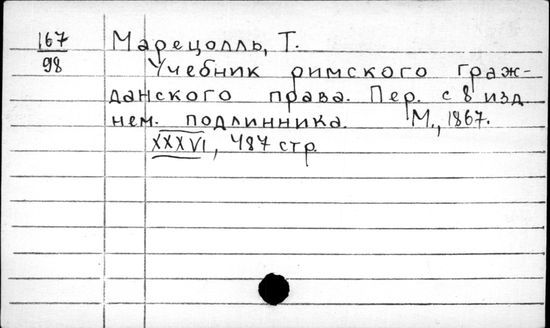 167
98
Марецолль, Т.
Учебник римского граж-
данского права. Пер. с 8 изд
нем. подлинника. М., 1867.
XXXVI, 487 стр.